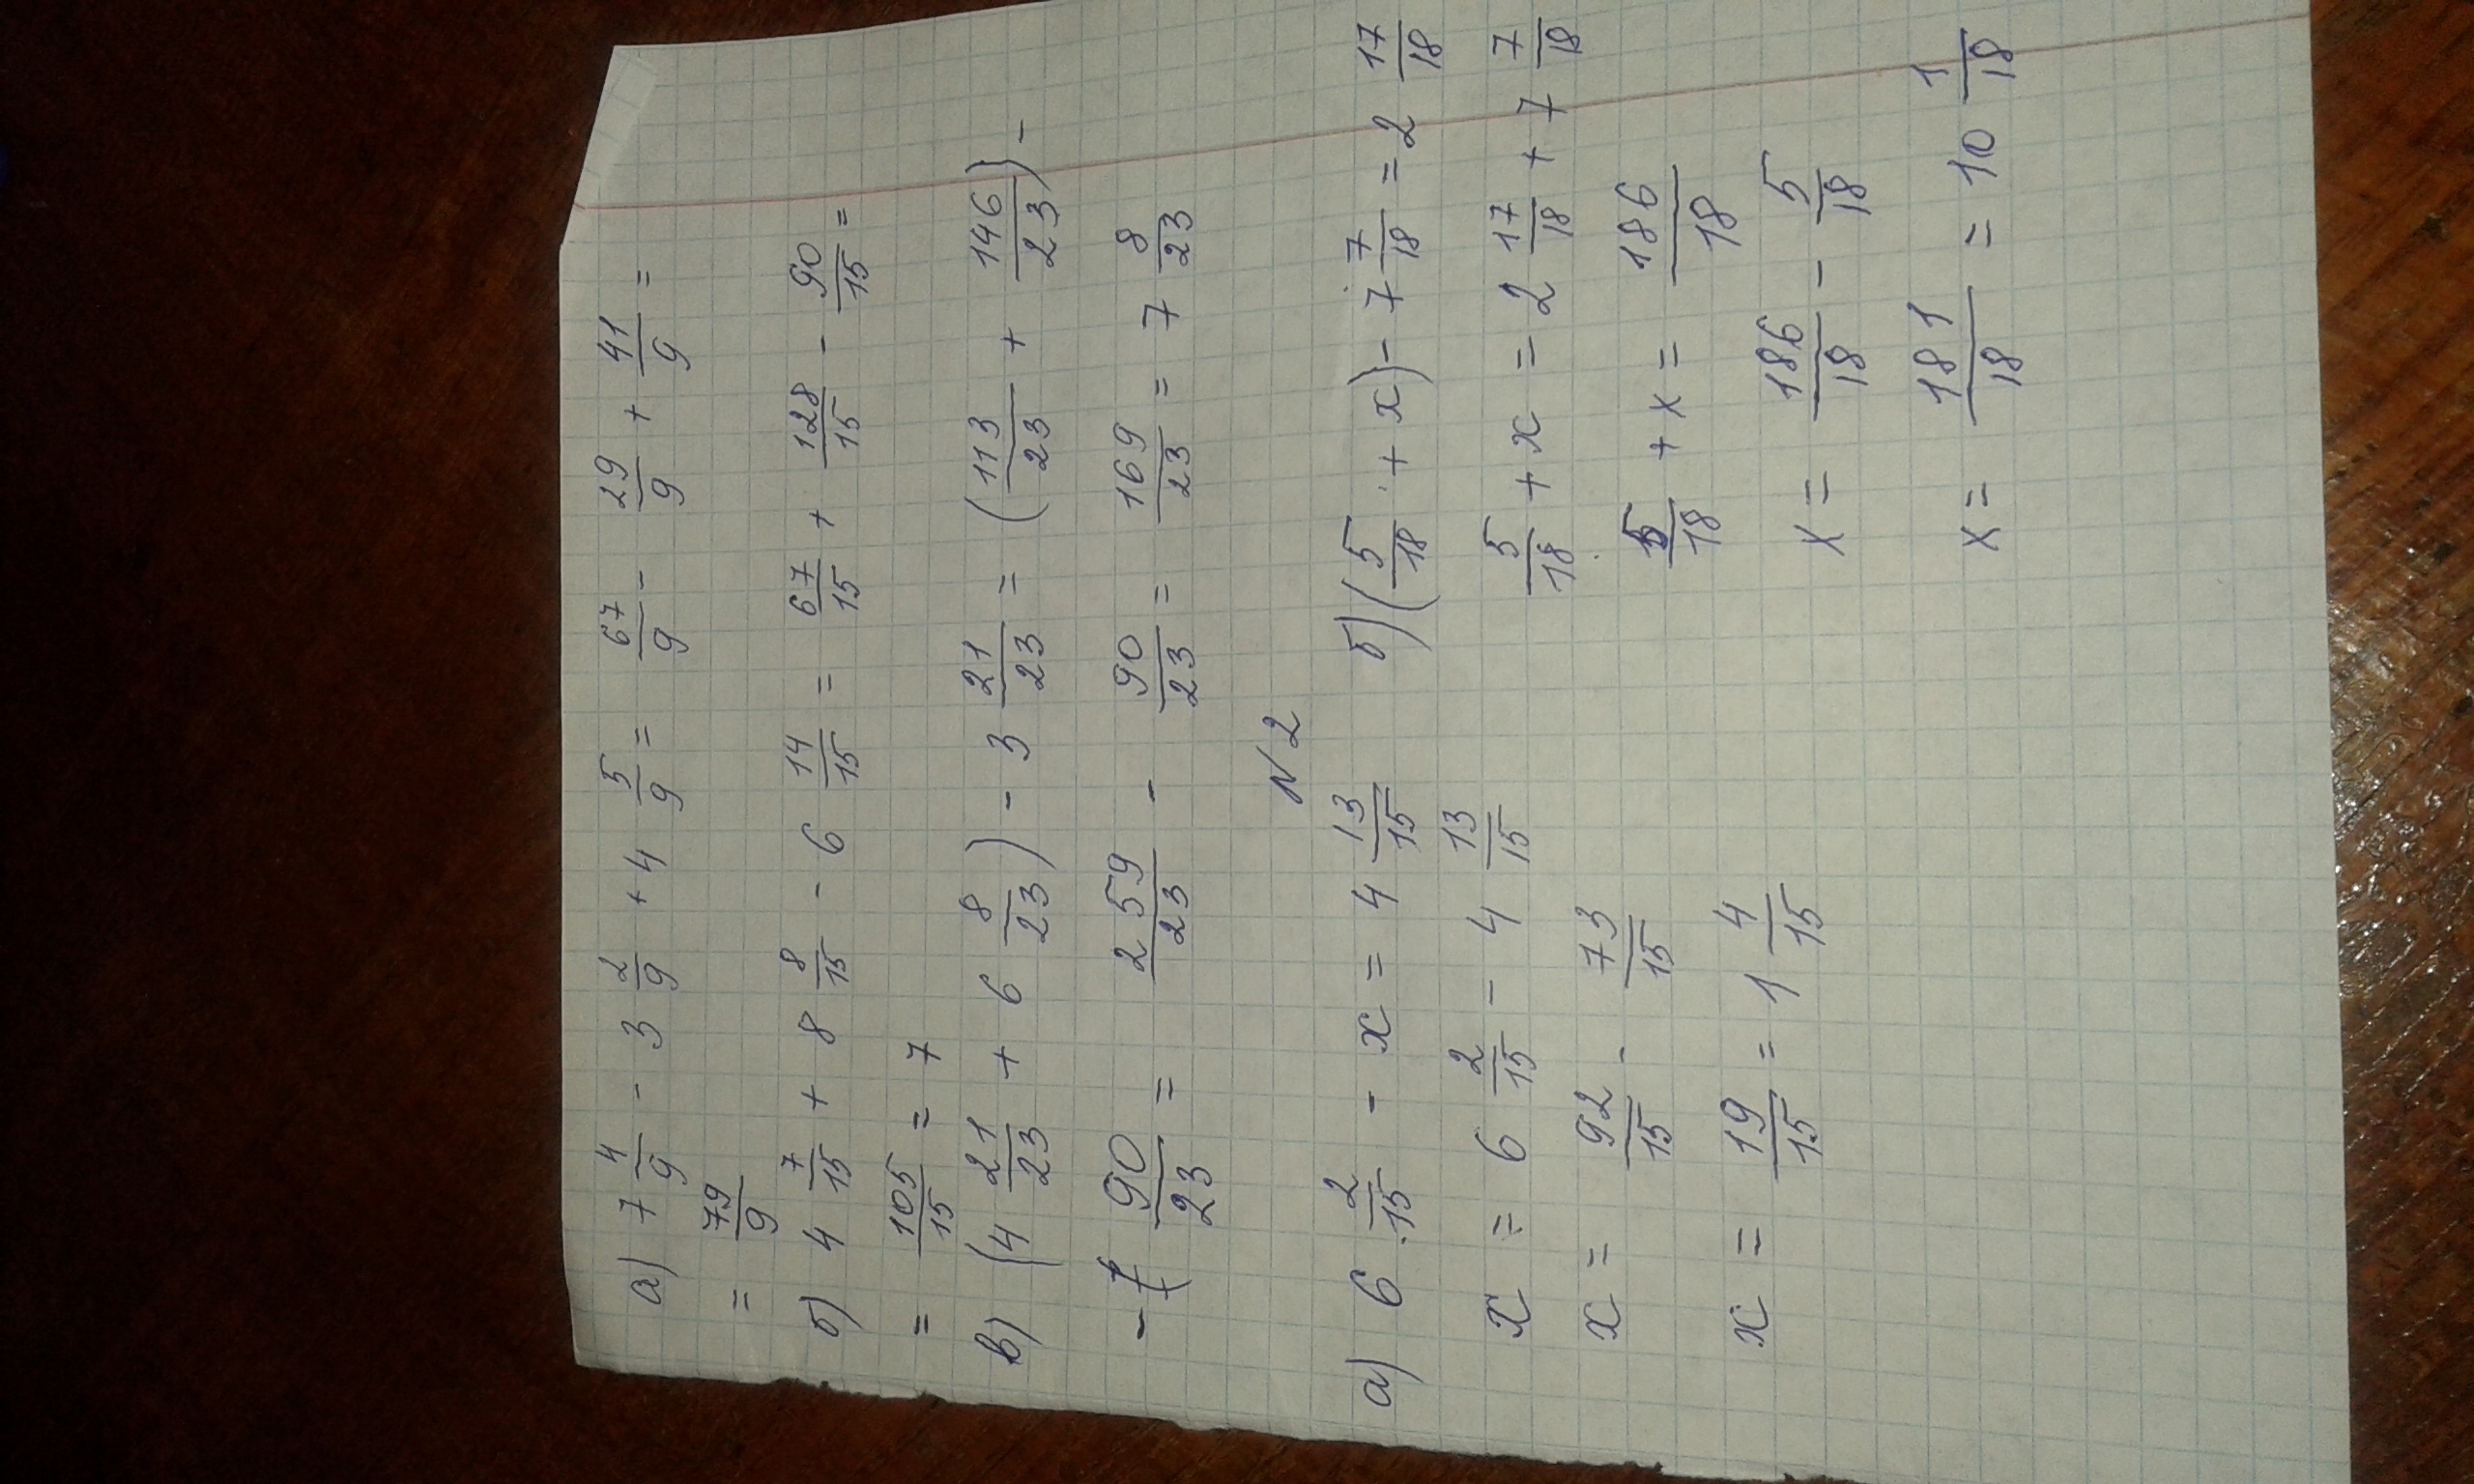 а) 7 4/9 - 3 2/9 + 4 5/9 = 67/9 - 29/9 + 41/9 =
= 79/9
б) 4 7/15 + 8 8/15 - 6 14/15 = 67/15 + 128/15 - 90/15 =
= 105/15 = 7
в) (4 21/23 + 6 8/23) - 3 21/23 = (113/23 + 146/23) -
- 90/23 = 259/23 - 90/23 = 169/23 = 7 8/23
N2
а) 6 2/15 - x = 4 13/15
x = 6 2/15 - 4 13/15
x = 92/15 - 73/15
x = 19/15 = 1 4/15
б) (5/18 + x) - 7 7/18 = 2 17/18
5/18 + x = 2 17/18 + 7 7/18
5/18 + x = 186/18
x = 186/18 - 5/18
x = 181/18 = 10 1/18